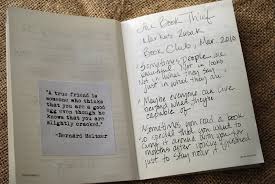 "A true friend is
someone who thinks
that you are a good
egg even though he
knows that you are
slightly cracked."
-Bernard Meltzer
The Book Thief
Markus Zusak
Book Club, Mar. 2010
Sometimes people are
beautiful. Not in looks
Not in what they say. Just
in what they are.
Maybe everyone can live
beyond what they're
capable of.
Sometimes you read a book
so special that you want to
carry it around with you for
months after you've finished
just to stay near it